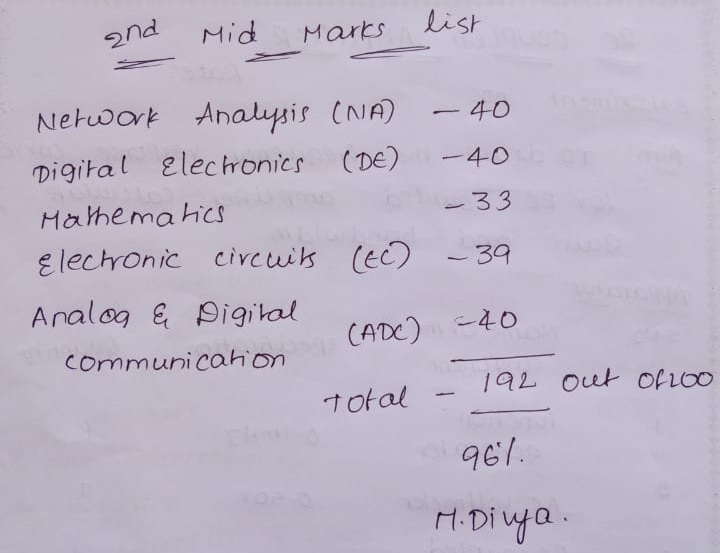 2nd Mid Marks list
Network Analysis (NA) - 40
Digital Electronics (DE) - 40
Mathematics - 33
Electronic circuits (EC) - 39
Analog & Digital
communication (ADC) - 40
Total - 192 out of 200
96%.
M.Divya.